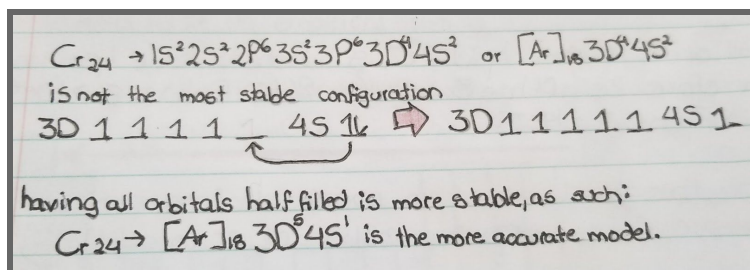 Cr₂₄ → 1S²2S²2P⁶3S²3P⁶3D⁴4S² or [Ar]₁₈3D⁴4S²
is not the most stable configuration
3D 1 1 1 1 _ 4S 1↓ ⇨ 3D 1 1 1 1 1 4S 1
having all orbitals half filled is more stable, as such:
Cr₂₄ → [Ar]₁₈ 3D⁵4S¹ is the more accurate model.